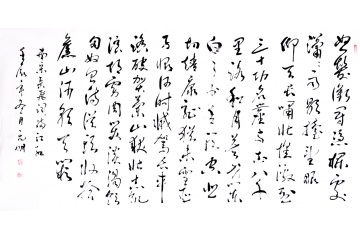 怒髮衝冠憑欄處
瀟瀟雨歇抬望眼
仰天長嘯壯懷激烈
三十功名塵與土八千
里路雲和月莫等閒
白了少年頭空悲
切靖康恥猶未雪臣
子恨何時滅駕長車
踏破賀蘭山缺壯志飢
餐胡虜肉笑談渴飲
匈奴血待從頭收拾
舊山河朝天闕
南宋岳飛詞滿江紅
壬辰年冬月元明